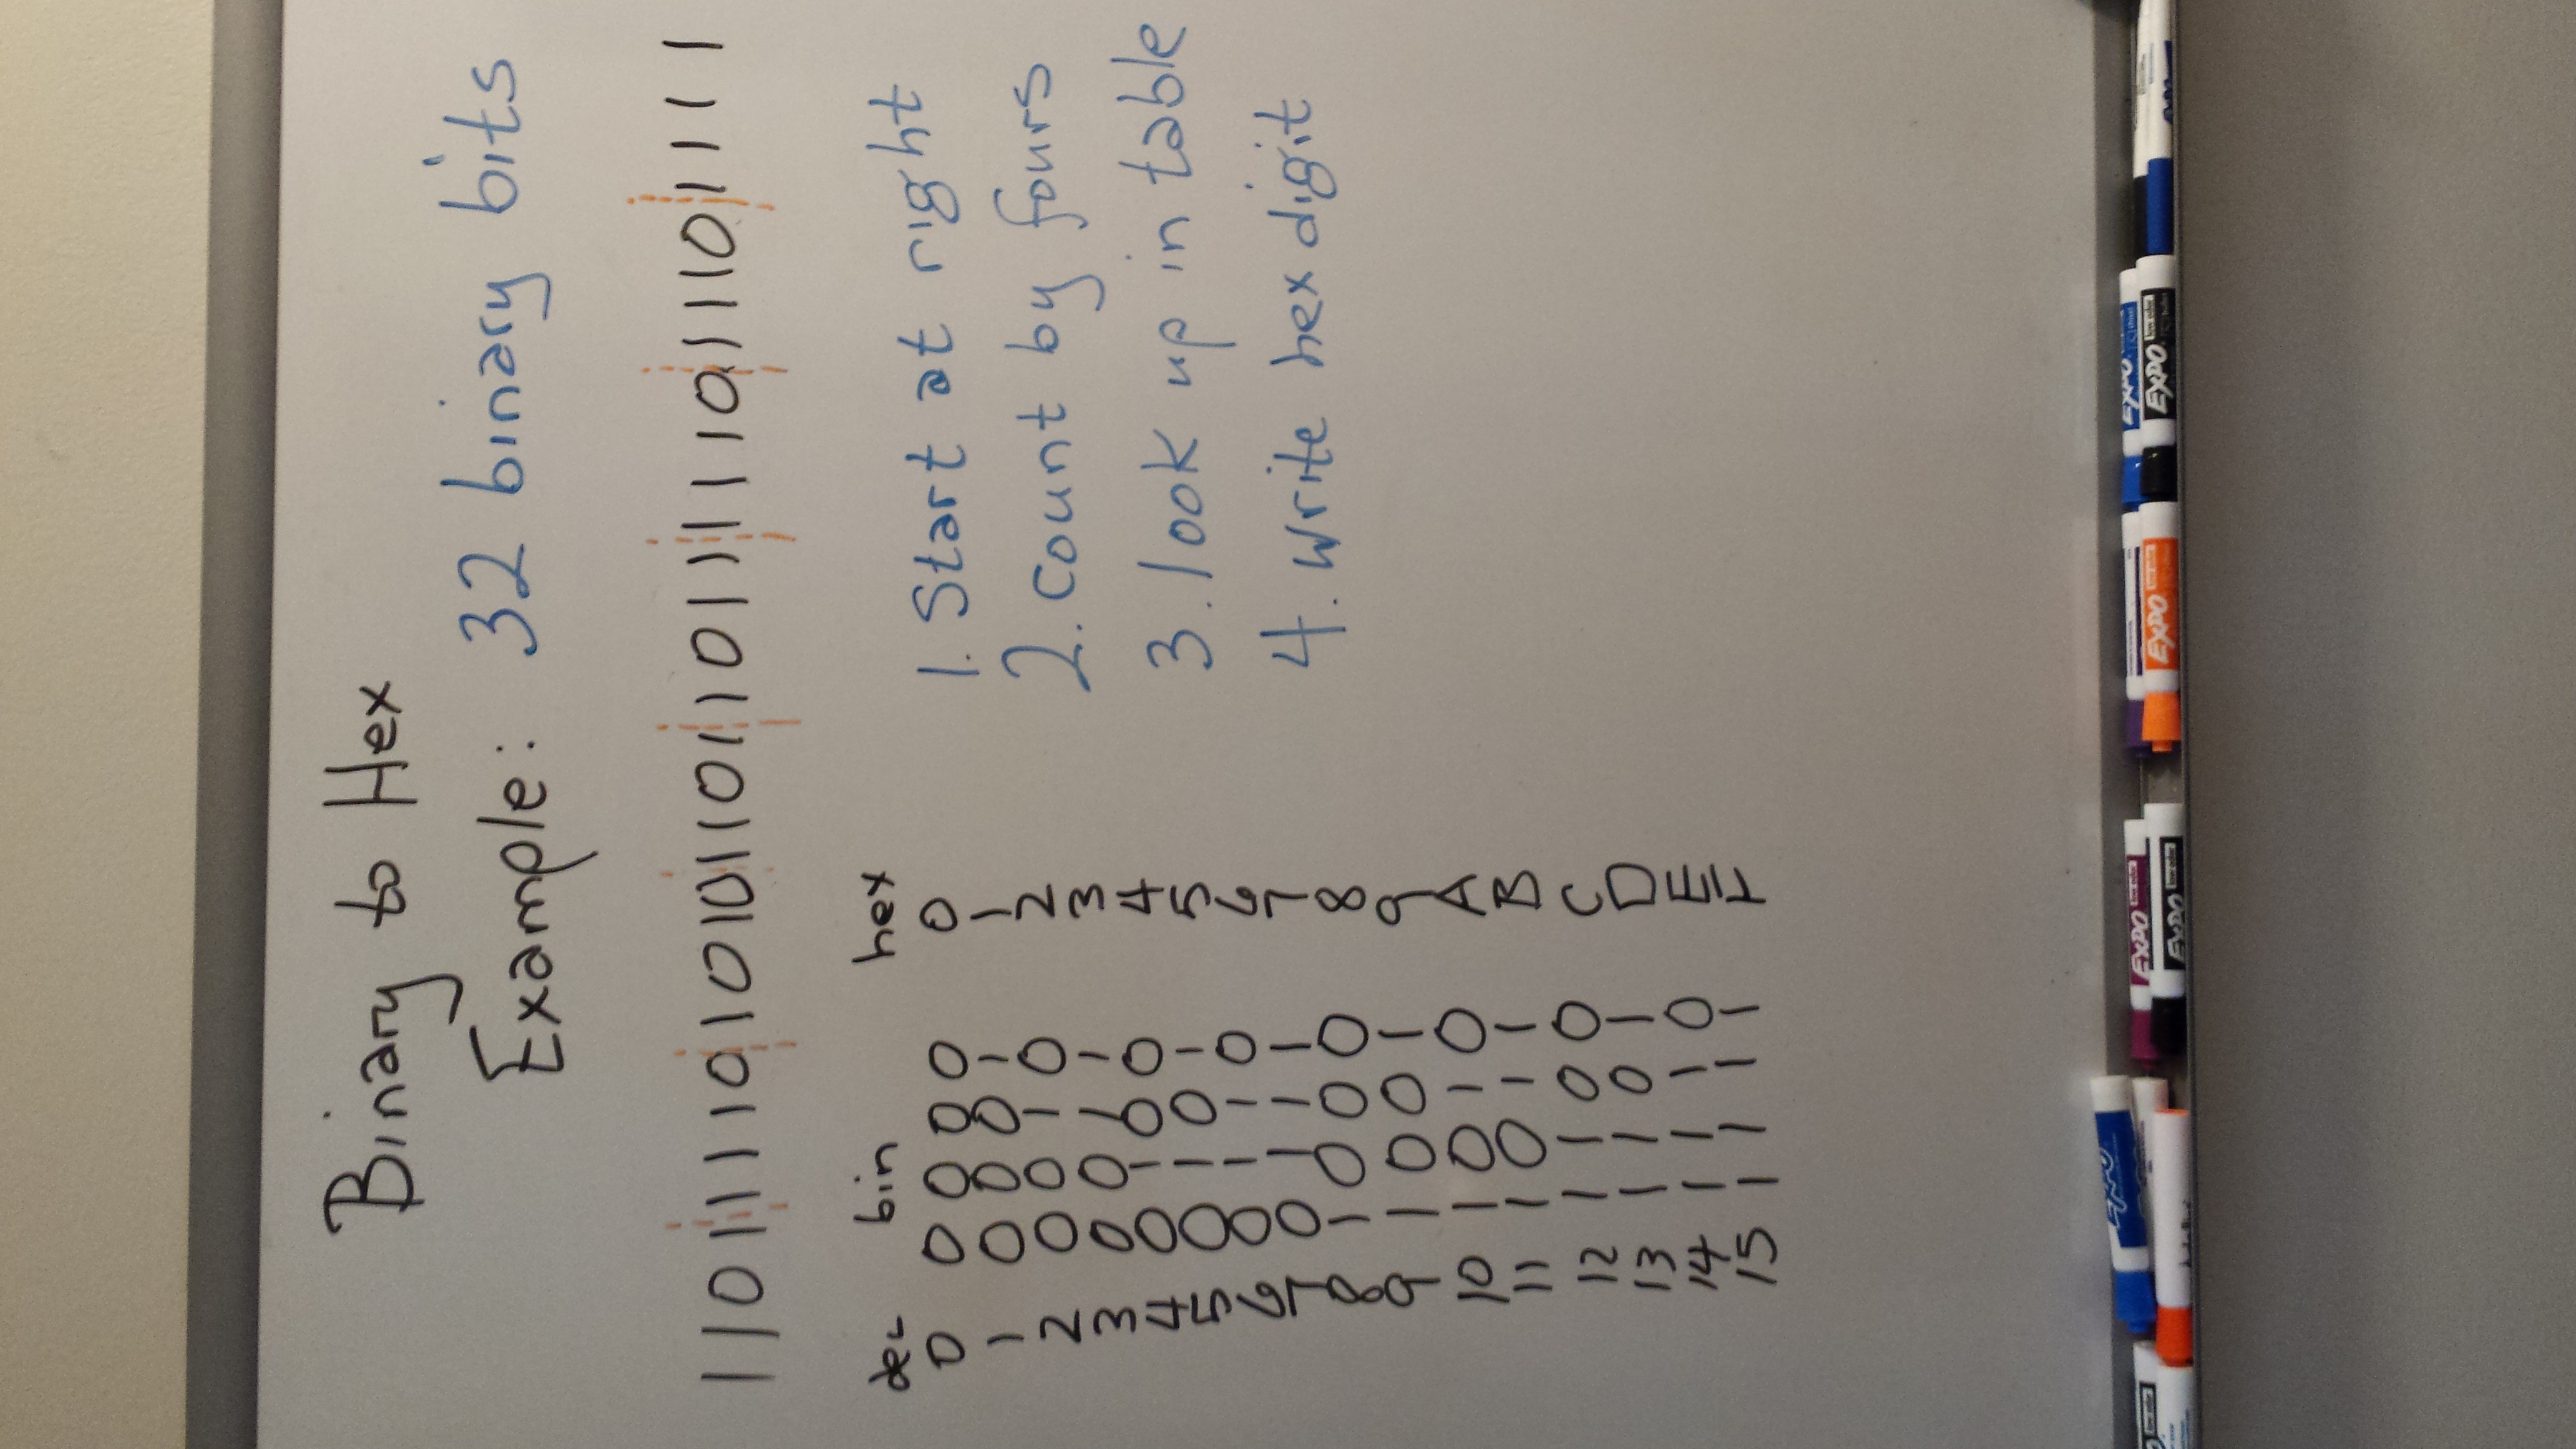 Binary to Hex
Example: 32 binary bits
11011110101011011011111011101111
dec bin hex
0 0 0 0 0 0
1 0 0 0 1 1
2 0 0 1 0 2
3 0 0 1 1 3
4 0 1 0 0 4
5 0 1 0 1 5
6 0 1 1 0 6
7 0 1 1 1 7
8 1 0 0 0 8
9 1 0 0 1 9
10 1 0 1 0 A
11 1 0 1 1 B
12 1 1 0 0 C
13 1 1 0 1 D
14 1 1 1 0 E
15 1 1 1 1 F
1. Start at right
2. count by fours
3. look up in table
4. write hex digit
EXPO
EXPO low odor
EXPO low odor
EXPO low odor
EXPO
EXPO low odor
low odor